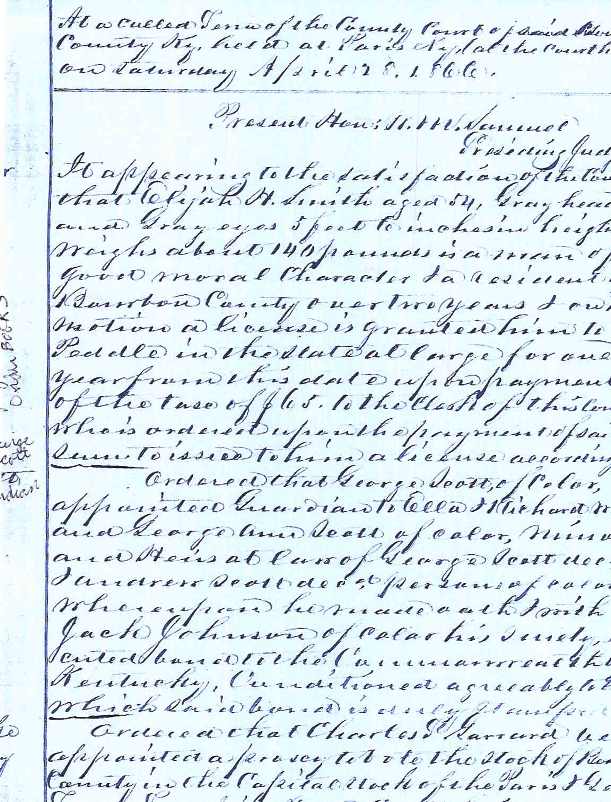 At a called Term of the County Court of said Bour
County Ky. held at Paris Ky. at the Courth
on Saturday April 28. 1866.
Present Hon: R. M. Samuel
Presiding Jud
It appearing to the satisfaction of the Cou
that Elijah H. Smith aged 54, Gray head
and Gray eyes 5 feet 10 inches in heigh
weighs about 140 pounds is a man of
good moral character & a resident
Bourbon County over two years & on
motion a license is granted him to
Peddle in the State at large for one
year from this date upon payment
of the taxe of $65. to the Clerk of this Cou
who is ordered upon the payment of sai
sum to issue to him a license according
Ordered that George Scott, of Color,
appointed Guardian to Ella & Richard
and George Ann Scott of color, Mino
and Heirs at law of George Scott dec
& Andrew Scott decd. persons of color
whereupon he made oath & with
Jack Johnson of color his surety,
cuted bond to the Commonwealth
Kentucky, Conditioned agreeably to
which said bond is duly Stamped
Ordered that Charles Garrard be
appointed a proxey to vote the Stock of Bou
County in the Capital Stock of the Paris &